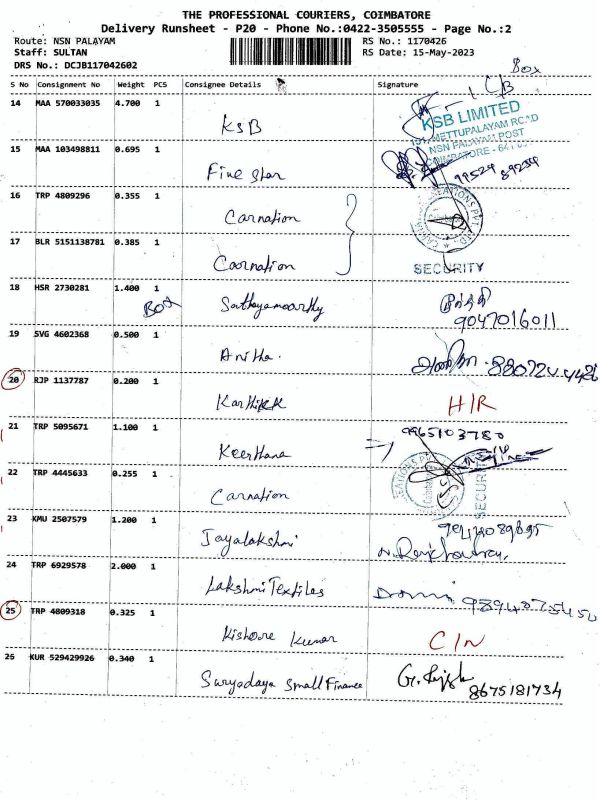 THE PROFESSIONAL COURIERS, COIMBATORE
Delivery Runsheet - P20 - Phone No.:0422-3505555 - Page No.:2
Route: NSN PALAYAM RS No.: 1170426
Staff: SULTAN RS Date: 15-May-2023
DRS No.: DCJB117042602
Box
S No Consignment No Weight PCS Consignee Details Signature
14 MAA 570033035 4.700 1 KSB
KSB LIMITED
METTUPALAYAM ROAD
NSN PALAYAM POST
COIMBATORE
15 MAA 103498811 0.695 1 Fine Star 99524 89234
16 TRP 4809296 0.355 1 Carnation
17 BLR 5151138781 0.385 1 Coornation
SECURITY
18 HSR 2730281 1.400 1 Box Sathayamoorthy
9047016011
19 SVG 4602368 0.500 1 Anitha.
20 RJP 1137787 0.200 1 Karthikk H/R
21 TRP 5095671 1.100 1 Keerthana 9965103780
22 TRP 4445633 0.255 1 Carnation
SECURITY
23 KMU 2507579 1.200 1 Jayalakshmi
24 TRP 6929578 2.000 1 Lakshmi Textiles
25 TRP 4809318 0.325 1 Kishore Kumar C/N
26 KUR 529429926 0.340 1 Suryodaya Small Finance
8675181734